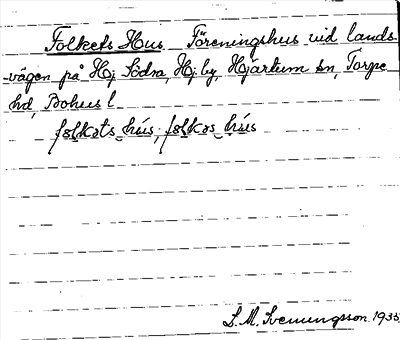 Folkets Hus Föreningshus vid lands-
vägen på Hj Södra, Hj.by, Hjärtum sn, Torpe
hd, Bohus l
fɷlkəts hús, fɷlkəs hús
S. M. Svenungsson 1935